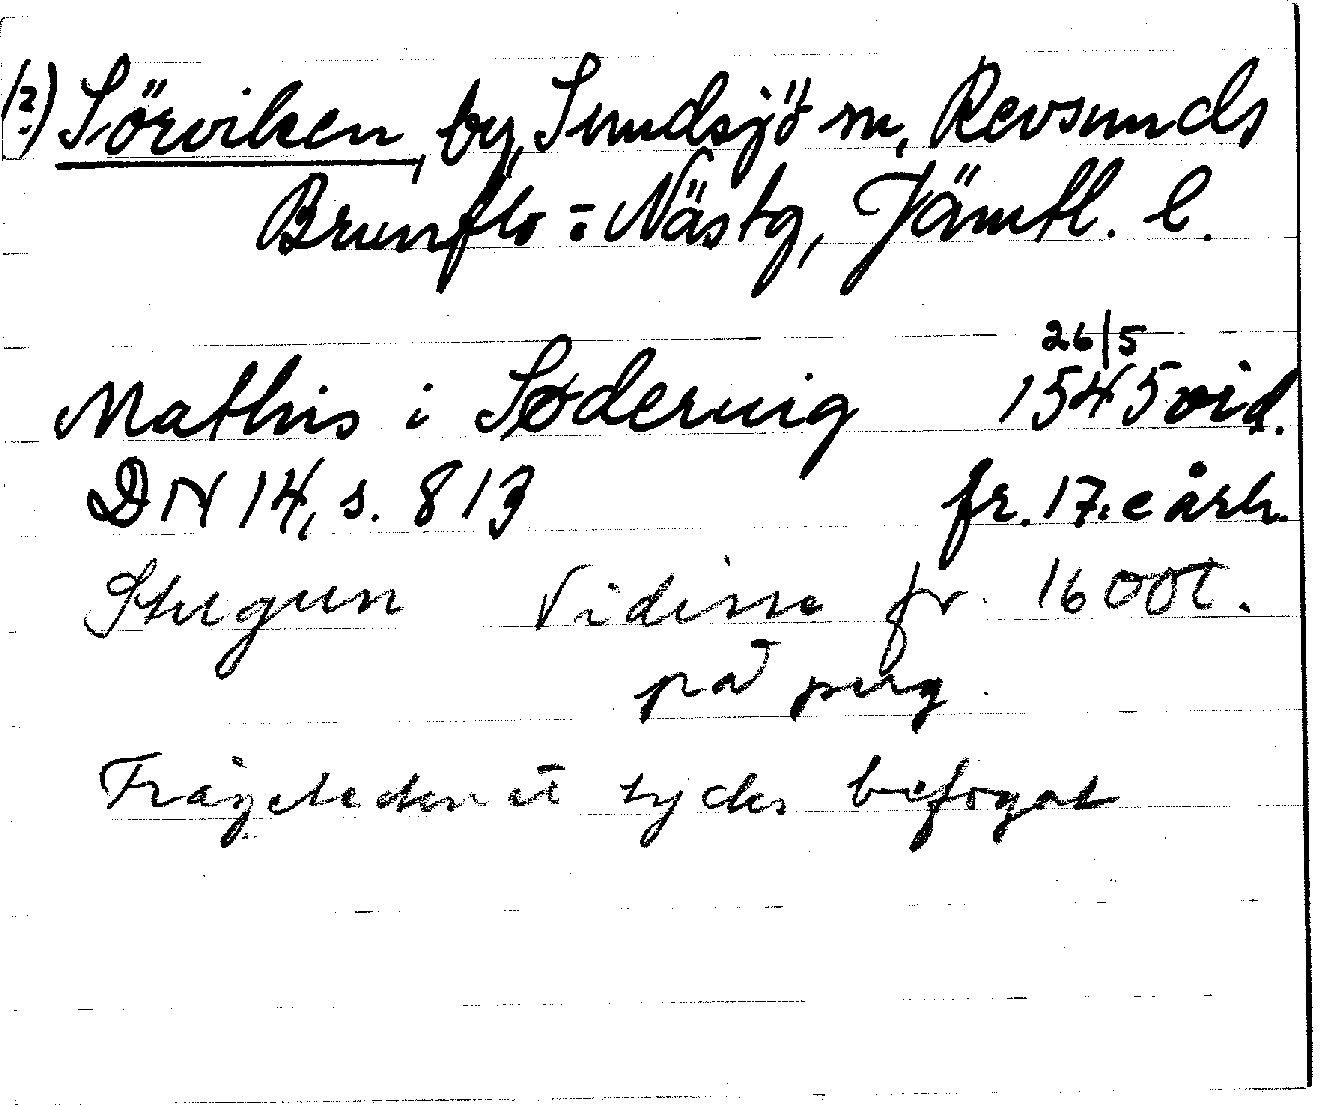 (?) Sörviken, by, Sundsjö sn, Revsunds
Brunflo = Nästg, Jämtl. l.
26/5
Mathis i Södervig 1545 vid.
DN 14, s. 813 fr. 17.e årh.
Stugun Vidisse fr. 1600t.
på perg.
Frågetecknet tycks befogat